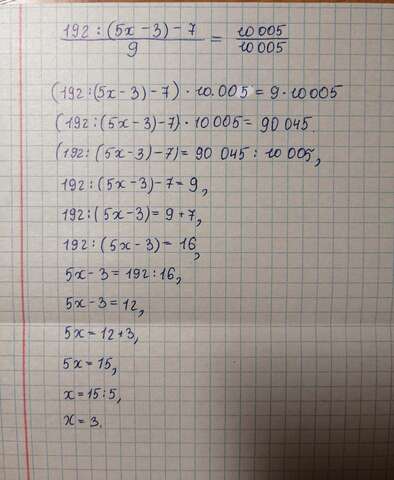 192 : (5x - 3) - 7 / 9 = 10 005 / 10 005
(192:(5x-3)-7) · 10.005 = 9 · 10005
(192:(5x-3)-7) · 10005 = 90 045.
(192:(5x-3)-7) = 90 045 : 10 005,
192:(5x-3)-7 = 9,
192:(5x-3) = 9 + 7,
192:(5x-3) = 16,
5x-3 = 192:16,
5x-3 = 12,
5x = 12+3,
5x = 15,
x = 15:5,
x = 3.